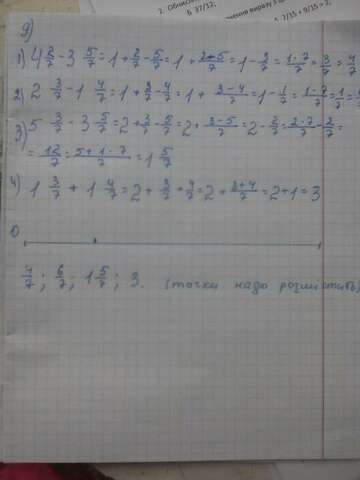 2. Обчисл
б 37/12;
чення виразу з
2/15 + 9/15 = ?
9)
1) 4 2/7 - 3 5/7 = 1 + 2/7 - 5/7 = 1 + 2+5/7 = 1 - 3/7 = 1·7/7 = 3/7 = 4/7
2) 2 3/7 - 1 4/7 = 1 + 3/7 - 4/7 = 1 + 3-4/7 = 1 - 1/7 = 1·7/7 = 1/7 =
3) 5 3/7 - 3 5/7 = 2 + 3/7 - 5/7 = 2 + 3-5/7 = 2 - 2/7 = 2·7/7 - 2/7 =
= 12/7 = 5+1·7/7 = 1 5/7
4) 1 3/7 + 1 4/7 = 2 + 3/7 + 4/7 = 2 + 3+4/7 = 2+1 = 3
0
4/7 ; 6/7 ; 1 5/7 ; 3. (точки надо розмистить)